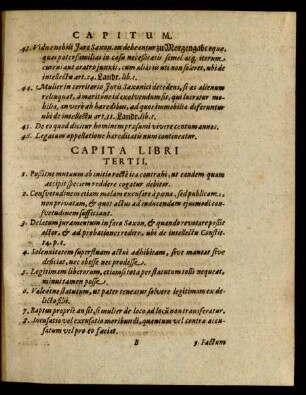 CAPITUM.
43. Viduæ nobili Jure Saxon. an debeantur zu Morgengabe equa,
quos paterfamilias in casu necessitatis semel atq; iterum
currui aut aratro junxit, cum alias iis uti non soleret, ubi de
intellectu art. 24. Landr. lib. 1.
44. Mulier in territorio Juris Saxonici decedens, si æs alienum
relinquat, à marito ne id exolvendum sit, qui lucratur mo-
bilia, an verò ab hæredibus, ad quos immobilia deferuntur
ubi de intellectu art. 31. Landr. lib. 1.
45. De eo quod dicitur hominem præsumi vivere centum annos.
46. Legatum appellatione hæreditatis num contineatur.
CAPITA LIBRI
TERTII.
1. Possitne mutuum ab initio rectè ita contrahi, ut eandem quam
accipit speciem reddere cogatur debitor.
2. Consvetudinem etiam malam excusare à pœna, sed publicam
non privatam, & quot actus ad inducendam ejusmodi con-
svetudinem sufficiant.
3. Delatum juramentum in foro Saxon. & quando revocare possit
actor, & ad probationes redire. ubi de intellectu Constit.
14. p. 1.
4. Solennitatem superfluam actui adhibitam, sive maneat sive
deficiat, nec obesse nec prodesse.
5. Legitimam liberorum, etiamsi tota per statutum tolli nequeat,
minui tamen posse.
6. Valeatne statutum, ut pater teneatur solvere legitimam ex de-
licto filii.
7. Raptus proprie an sit, si mulier de loco ad locum non transferatur.
8. Inculpatio vel excusatio moribundi, quantum vel contra accu-
satum vel pro eo faciat.
B
9. Factum